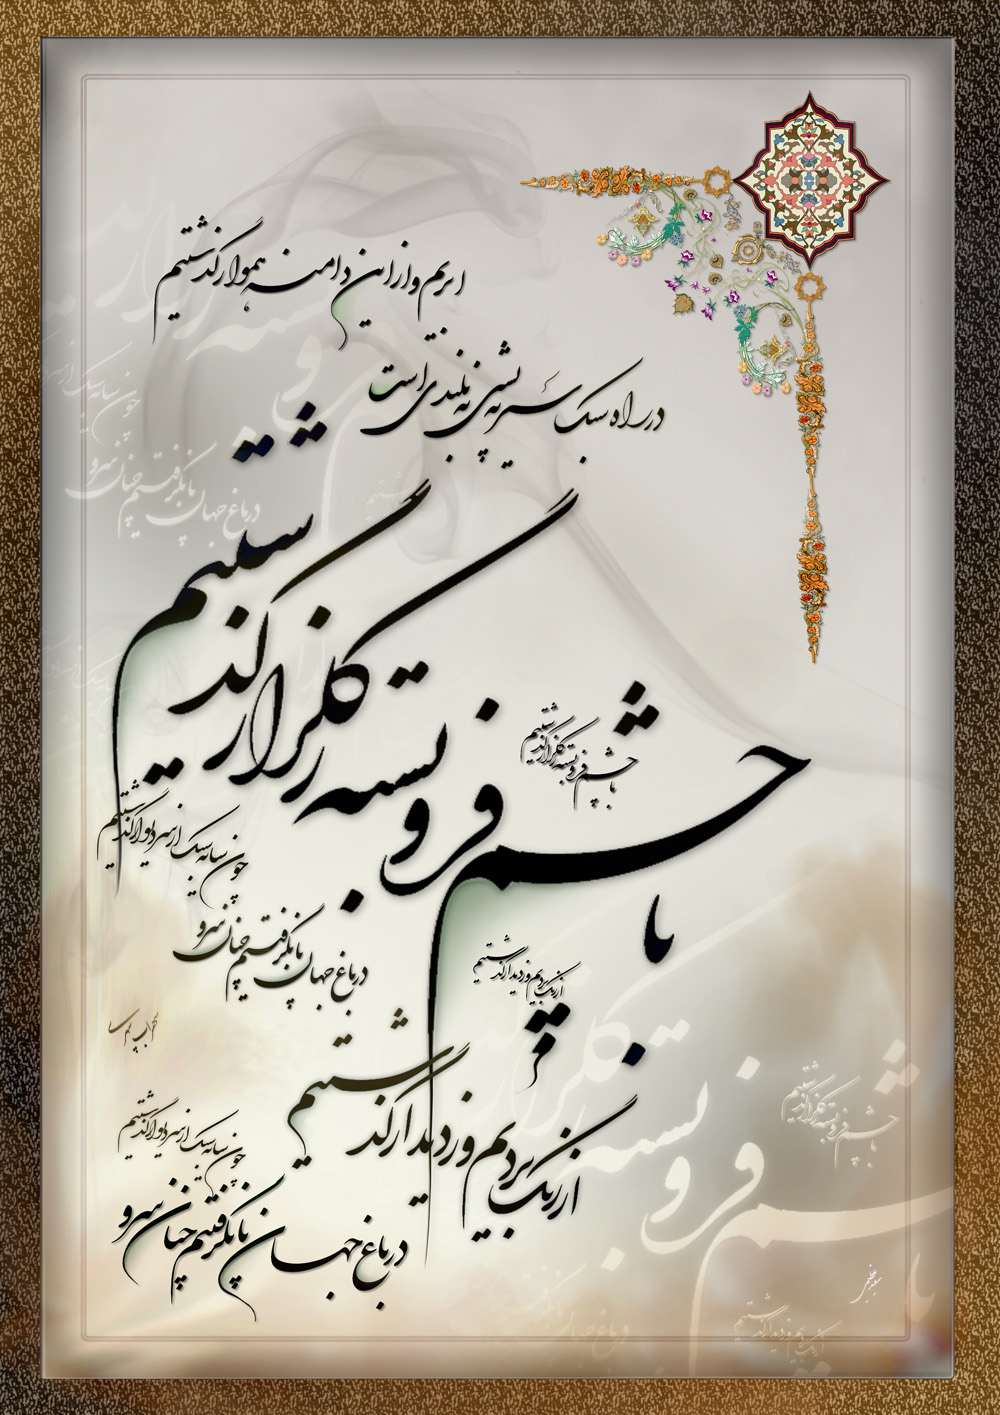 ابریم و ازین دامنه هموار گذشتیم
در راه سبک سر نه پستی نه بلندی است
با چشم فروبسته ز گلزار گذشتیم
با چشم فروبسته ز گلزار گذشتیم
چون سایه سبک از سر دیوار گذشتیم
در باغ جهان پا نگرفتیم چنان سرو
از رنگ بریدیم و ز دیدار گذشتیم
از رنگ بریدیم و ز دیدار گذشتیم
چون سایه سبک از سر دیوار گذشتیم
در باغ جهان پا نگرفتیم چنان سرو